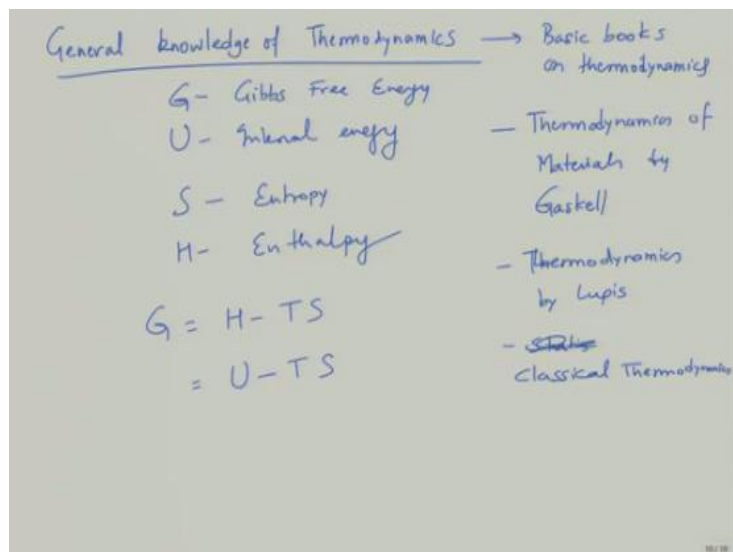 General knowledge of Thermodynamics → Basic books
on thermodynamics
G - Gibbs Free Energy
U - Internal enegy
S - Entropy
H - Enthalpy
G = H - TS
= U - TS
- Thermodynamics of
Materials by
Gaskell
- Thermodynamics
by Lupis
-
Classical Thermodynamics